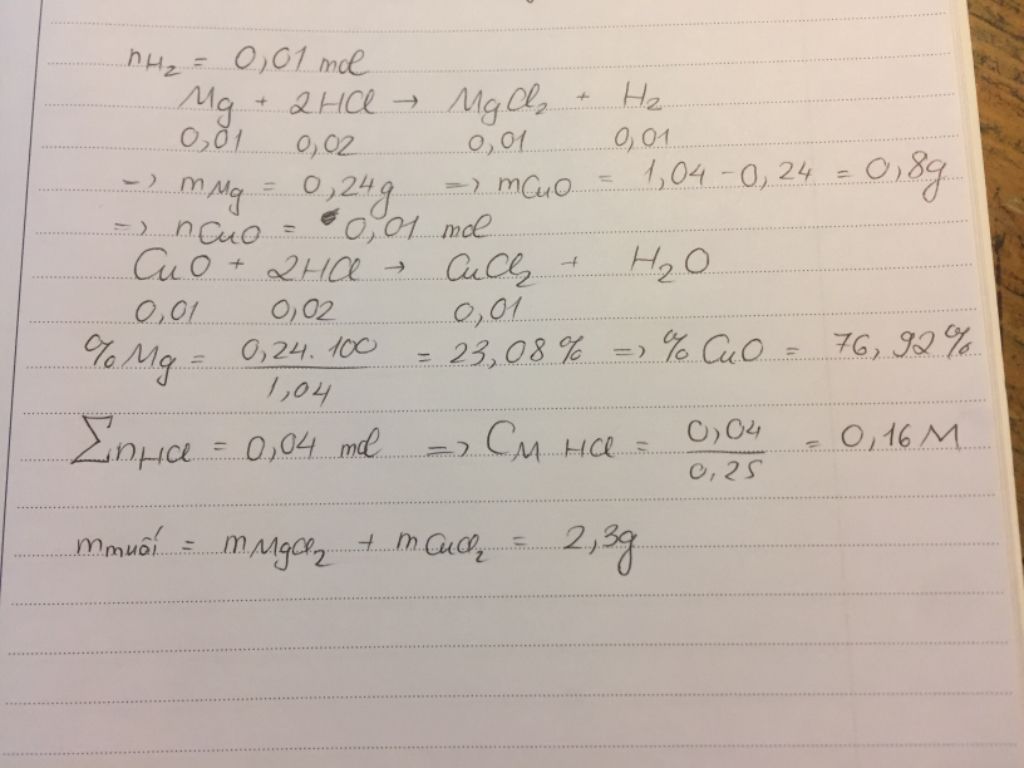 nH₂ = 0,01 mol
Mg + 2HCl → MgCl₂ + H₂
0,01 0,02 0,01 0,01
=> mMg = 0,24g => mCuO = 1,04 - 0,24 = 0,8g
=> nCuO = 0,01 mol
CuO + 2HCl → CuCl₂ + H₂O
0,01 0,02 0,01
%Mg = 0,24.100 / 1,04 = 23,08% => %CuO = 76,92%
∑nHCl = 0,04 mol => CM HCl = 0,04 / 0,25 = 0,16M
mmuối = mMgCl₂ + mCuCl₂ = 2,3g